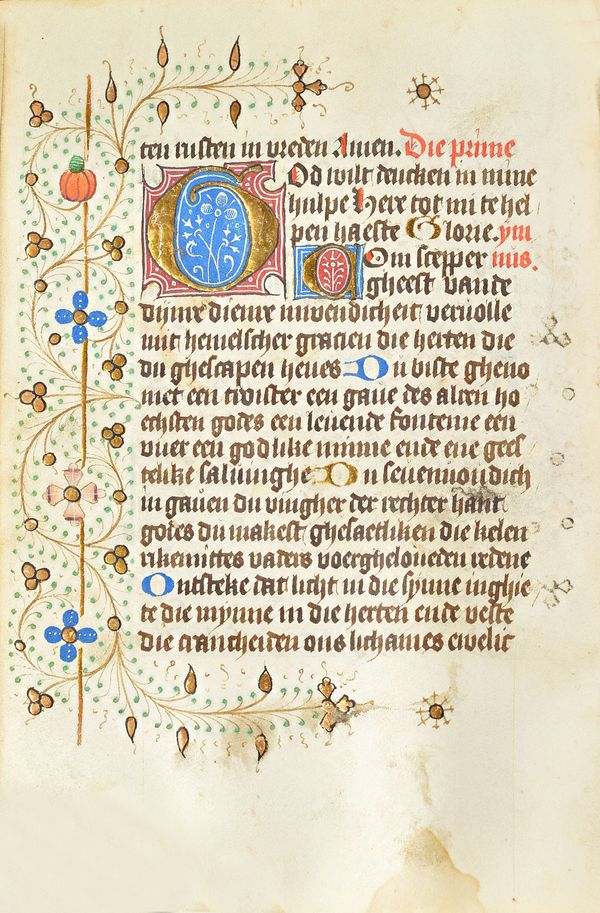 ten rusten in vreden Amen. Die prime
God wilt dencken in mine
hulpe Here tot mi te hel
pen haeste Glorie. ym
Com scepper nus.
gheest vande
dijnre dienre inwendicheit vervolle
mit hemelscher gracien die herten die
du ghescapen heves Du biste gheno
met een troister een gave des alren ho
echsten godes een levende fonteine een
vuer een godlike minne ende ene gees
telike salvinghe Du sevenvoudich
in gaven du vingher der rechter hant
godes du makest ghesaetliken die kelen
rikemittes vaders voergheloveden redene
Ontsteke dat licht in die synne inghie
te die mynne in die herten ende veste
die crancheiden ons lichames ewelic